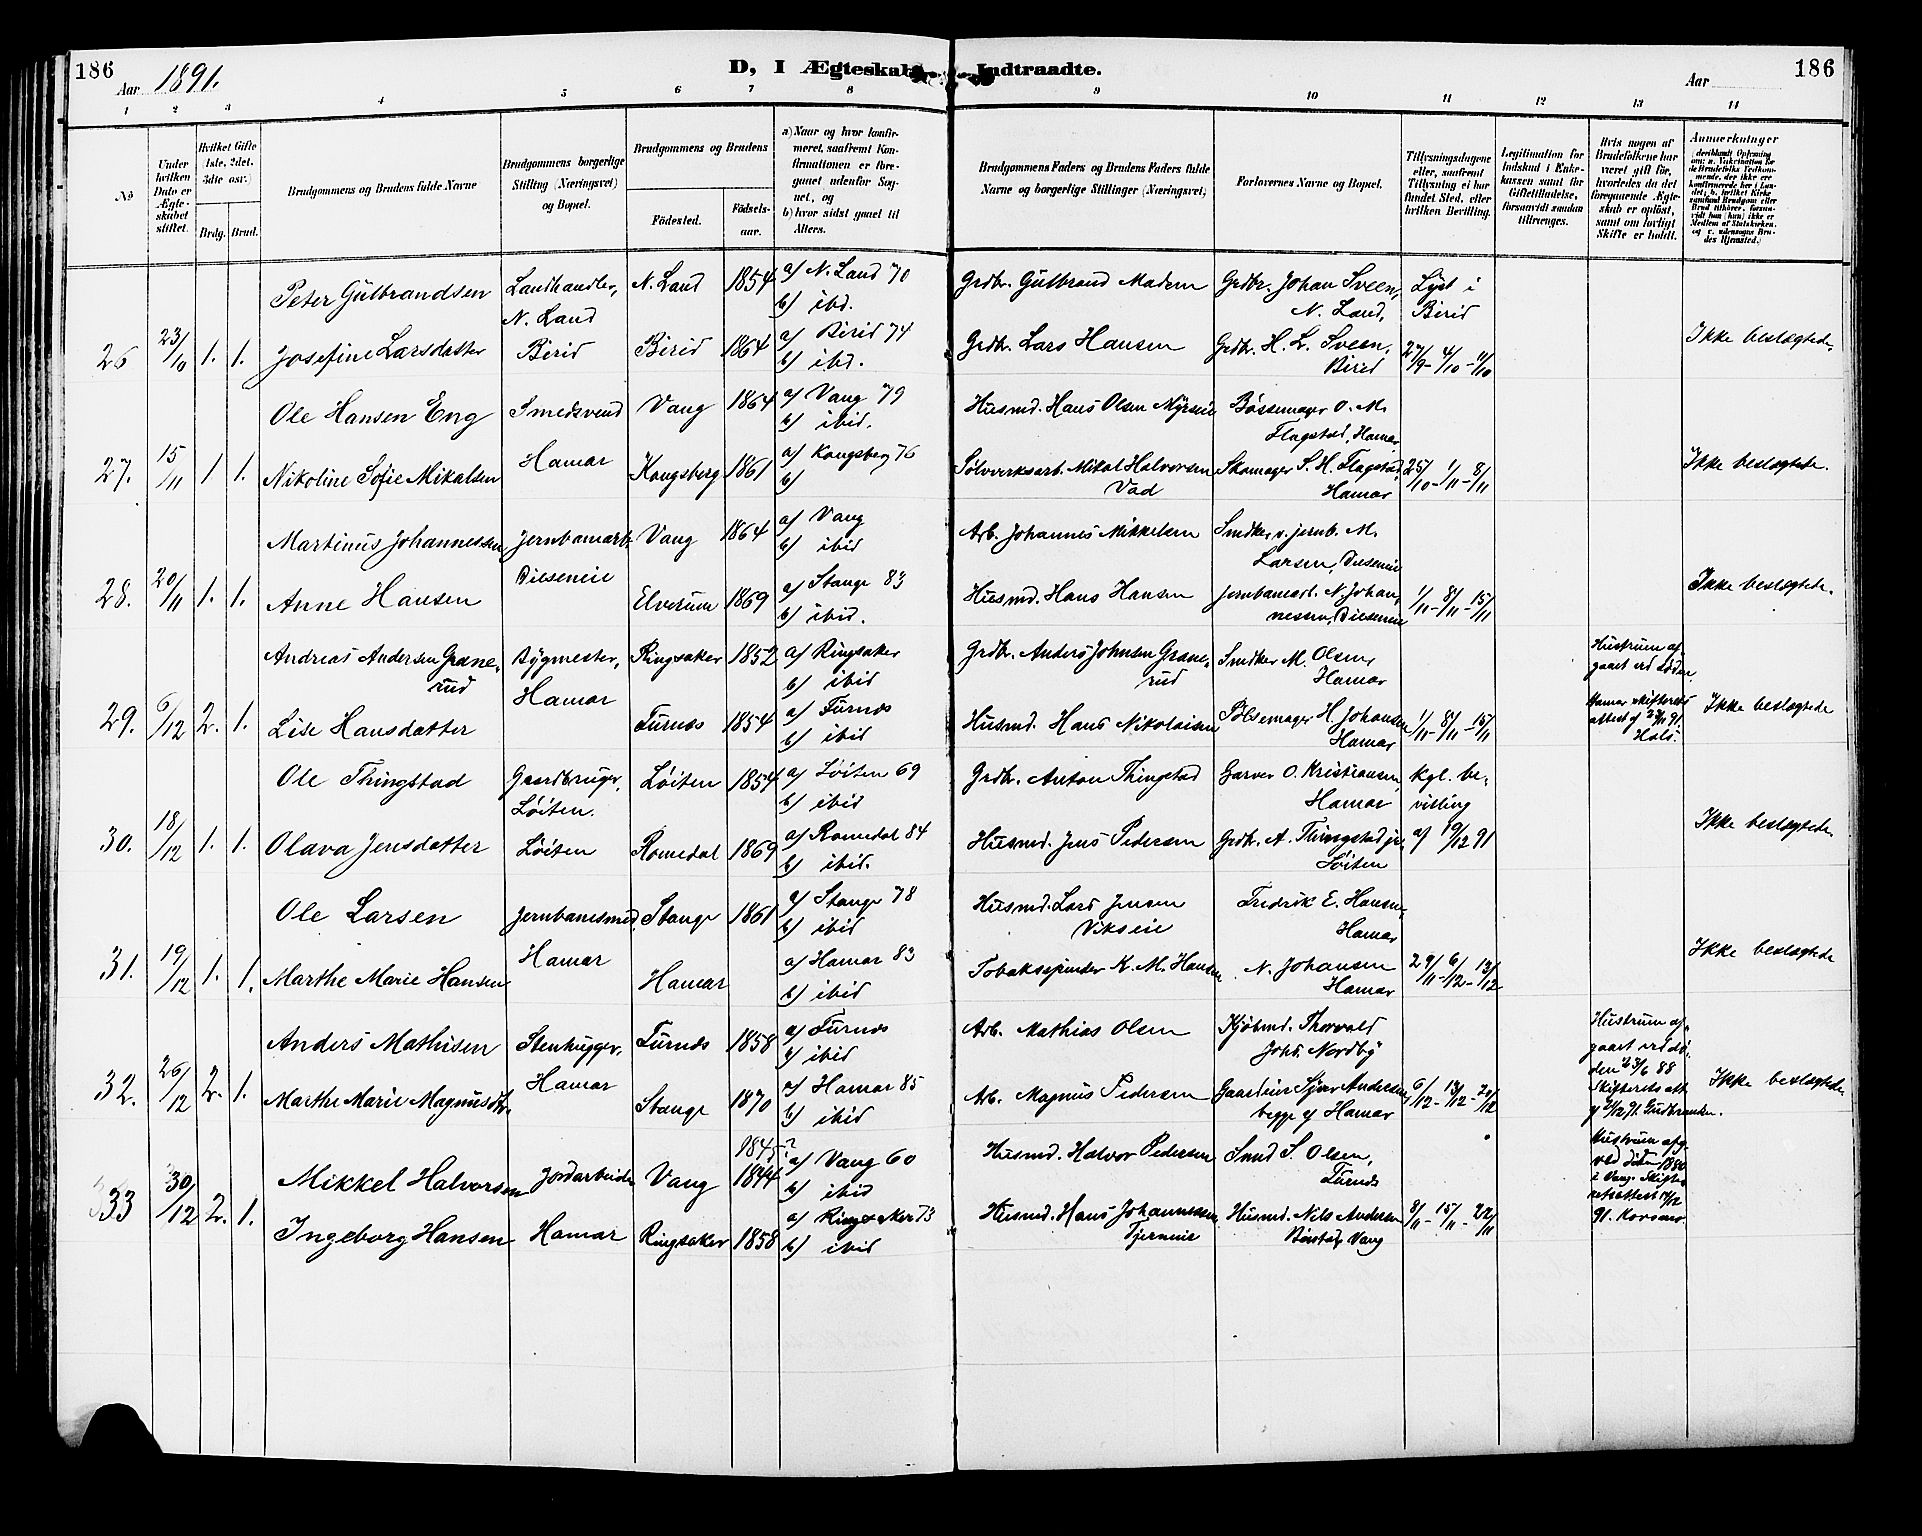 186
Aar 1891.
D, I Ægteskab Indtraadte.
Aar
186
1 2 3 4 5 6 7 8 9 10 11 12 13 14
No
Under hvilken Dato er Ægteskabet stiftet.
Hvilket Gifte 1ste, 2det, 3die osv.
Brdg. Brud.
Brudgommens og Brudens fulde Navne
Brudgommens borgerlige Stilling (Næringsvei) og Bopæl.
Brudgommens og Brudens
Födested.
Födsels-aar.
a) Naar og hvor konfirmeret, saafremt Konfirmationen er foregaaet udenfor Sognet, og
b) hvor sidst gaaet til Alters.
Brudgommens Faders og Brudens Faders fulde Navne og borgerlige Stillinger (Næringsvei)
Forlovernes Navne og Bopæl.
Tillysningsdagene eller, saafremt Tillysning ei har fundet Sted, efter hvilken Bevilling.
Legitimation for Indskud i Enkekassen samt for Giftetilladelse, forsaavidt saadan tiltrænges.
Hvis nogen af Brudefolkene har været gift för, hvorledes da det foregaaende Ægteskab er oplöst, samt om lovligt Skifte er holdt.
Anmærkninger
26 23/10 1. 1.
Peter Gulbrandsen Landhandler, N. Land N. Land 1854 a) N. Land 70 b) ibd. Grdbr. Gulbrand Grdbr. Johan Sveen, N. Land, Lyst i Birid
Josefine Larsdatter Birid Birid 1864 a) Birid 74 b) ibd. Grdbr. Lars Hansen Grdbr. H. L. Sveen, Birid 27/9 - 4/10 - 11/10 Ikke beslægtede.
27. 15/11 1. 1.
Ole Hansen Eng Smedsvend Vang 1864 a) Vang 79 b) ibid. Husmd. Hans Olsen Bössemager O. M. Flagstad, Hamar
Nikoline Sofie Mikalsen Hamar Kongsberg 1861 a) Kongsberg 76 b) Sölvverksarb. Mikal Halvorsen Vad Skomager S. H. Flagstad, Hamar 25/10 - 1/11 - 8/11 Ikke beslægtede.
28. 20/11 1. 1.
Martinus Johannessen Jernbanearb. Vang 1864 a) Vang b) ibid Arb. Johannes Mikkelsen Smdker v. jernb. M. Larsen, Diseneie
Anne Hansen Diseneie Elverum 1869 a) Stange 83 b) ibid. Husmd. Hans Hansen Jernbanearb. N. Johannessen, Diseneie 1/11 - 8/11 - 15/11 Ikke beslægtede.
29. 6/12 2. 1.
Andreas Andersen Granerud Bygmester, Hamar Ringsaker 1852 a) Ringsaker b) ibid Grdbr. Anders Johnsen Granerud Smdker M. Olsen, Hamar Hustruen afgaaet ved Döden.
Lise Hansdatter Furnes 1854 a) Furnes b) ibid Husmd. Hans Nikolaisen Pölsemager H. Johansen Hamar 1/11 - 8/11 - 15/11 Hamar skifterets attest af 91. Ikke beslægtede
30. 18/12 1. 1.
Ole Thingstad Gaardbruger, Löiten. Löiten 1854 a) Löiten 69 b) ibid Grdbr. Anton Thingstad Garver O. Kristiansen, Hamar kgl. bevilling
Olava Jensdatter Löiten Romedal 1869 a) Romedal 84 b) ibid. Husmd. Jens Pedersen Grdbr. A. Thingstad jr. Löiten af 19/12 91 Ikke beslægtede.
31. 19/12 1. 1.
Ole Larsen Jernbanesmed, Stange 1861 a) Stange 78 b) ibid Husmd. Lars Jensen Vikseie Fredrik E. Hansen, Hamar
Marthe Marie Hansen Hamar Hamar a) Hamar 83 b) ibid Tobaksspinder K. M. Hansen N. Johansen Hamar 29/11 - 6/12 - 13/12 Ikke beslægtede
32. 26/12 2. 1.
Anders Mathisen Stenhugger, Furnes 1858 a) Furnes b) ibid Arb. Mathias Olsen Kjöbmd. Thorvald Johs. Nordby Hustruen afgaaet ved döden 23/6 88
Marthe Marie Magnusdtr. Hamar Stange 1870 a) Hamar 85 b) ibid Arb. Magnus Pedersen Andersen, begge af Hamar 6/12 - 13/12 - 20/12 Skifterets att. Ikke beslægtede
33 30/12 2. 1.
Mikkel Halvorsen Jordarbeider Vang 1845? 1844 a) Vang 60 b) ibid Husmd. Halvor Pedersen Smed S. Olsen, Furnes Hustruen afg. ved döden i Vang. Skifteretsattest
Ingeborg Hansen Hamar Ringsaker 1858 a) Ringsaker 73 b) ibid Husmd. Hans Johannessen Tjerneie Husmd. Nils Andersen Vang 8/11 - 15/11 - 22/11 91.